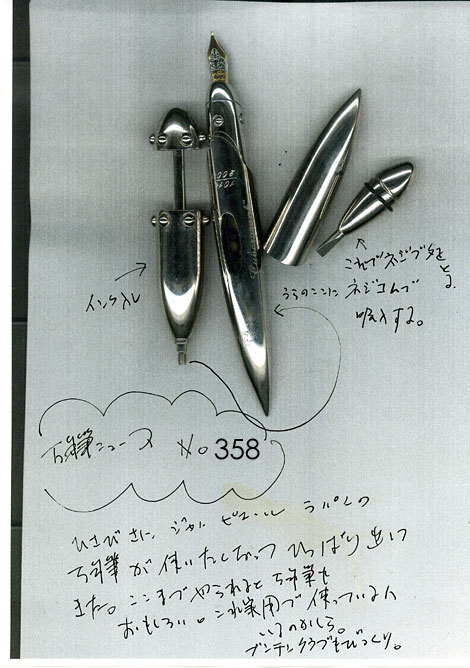 これでネジブタを
とる。
うらのここに ネジコムで
吸入する。
インク入レ
101/200
万年筆ニュース No 358
ひさびさに、ジャン ピエール ラパンの
万年筆が使いたくなって ひっぱり出して
また。ここまでやられると 万年筆も
おもしろい。これ実用で使っている人
いるのかしら。
ブンテンクラブもびっくり。